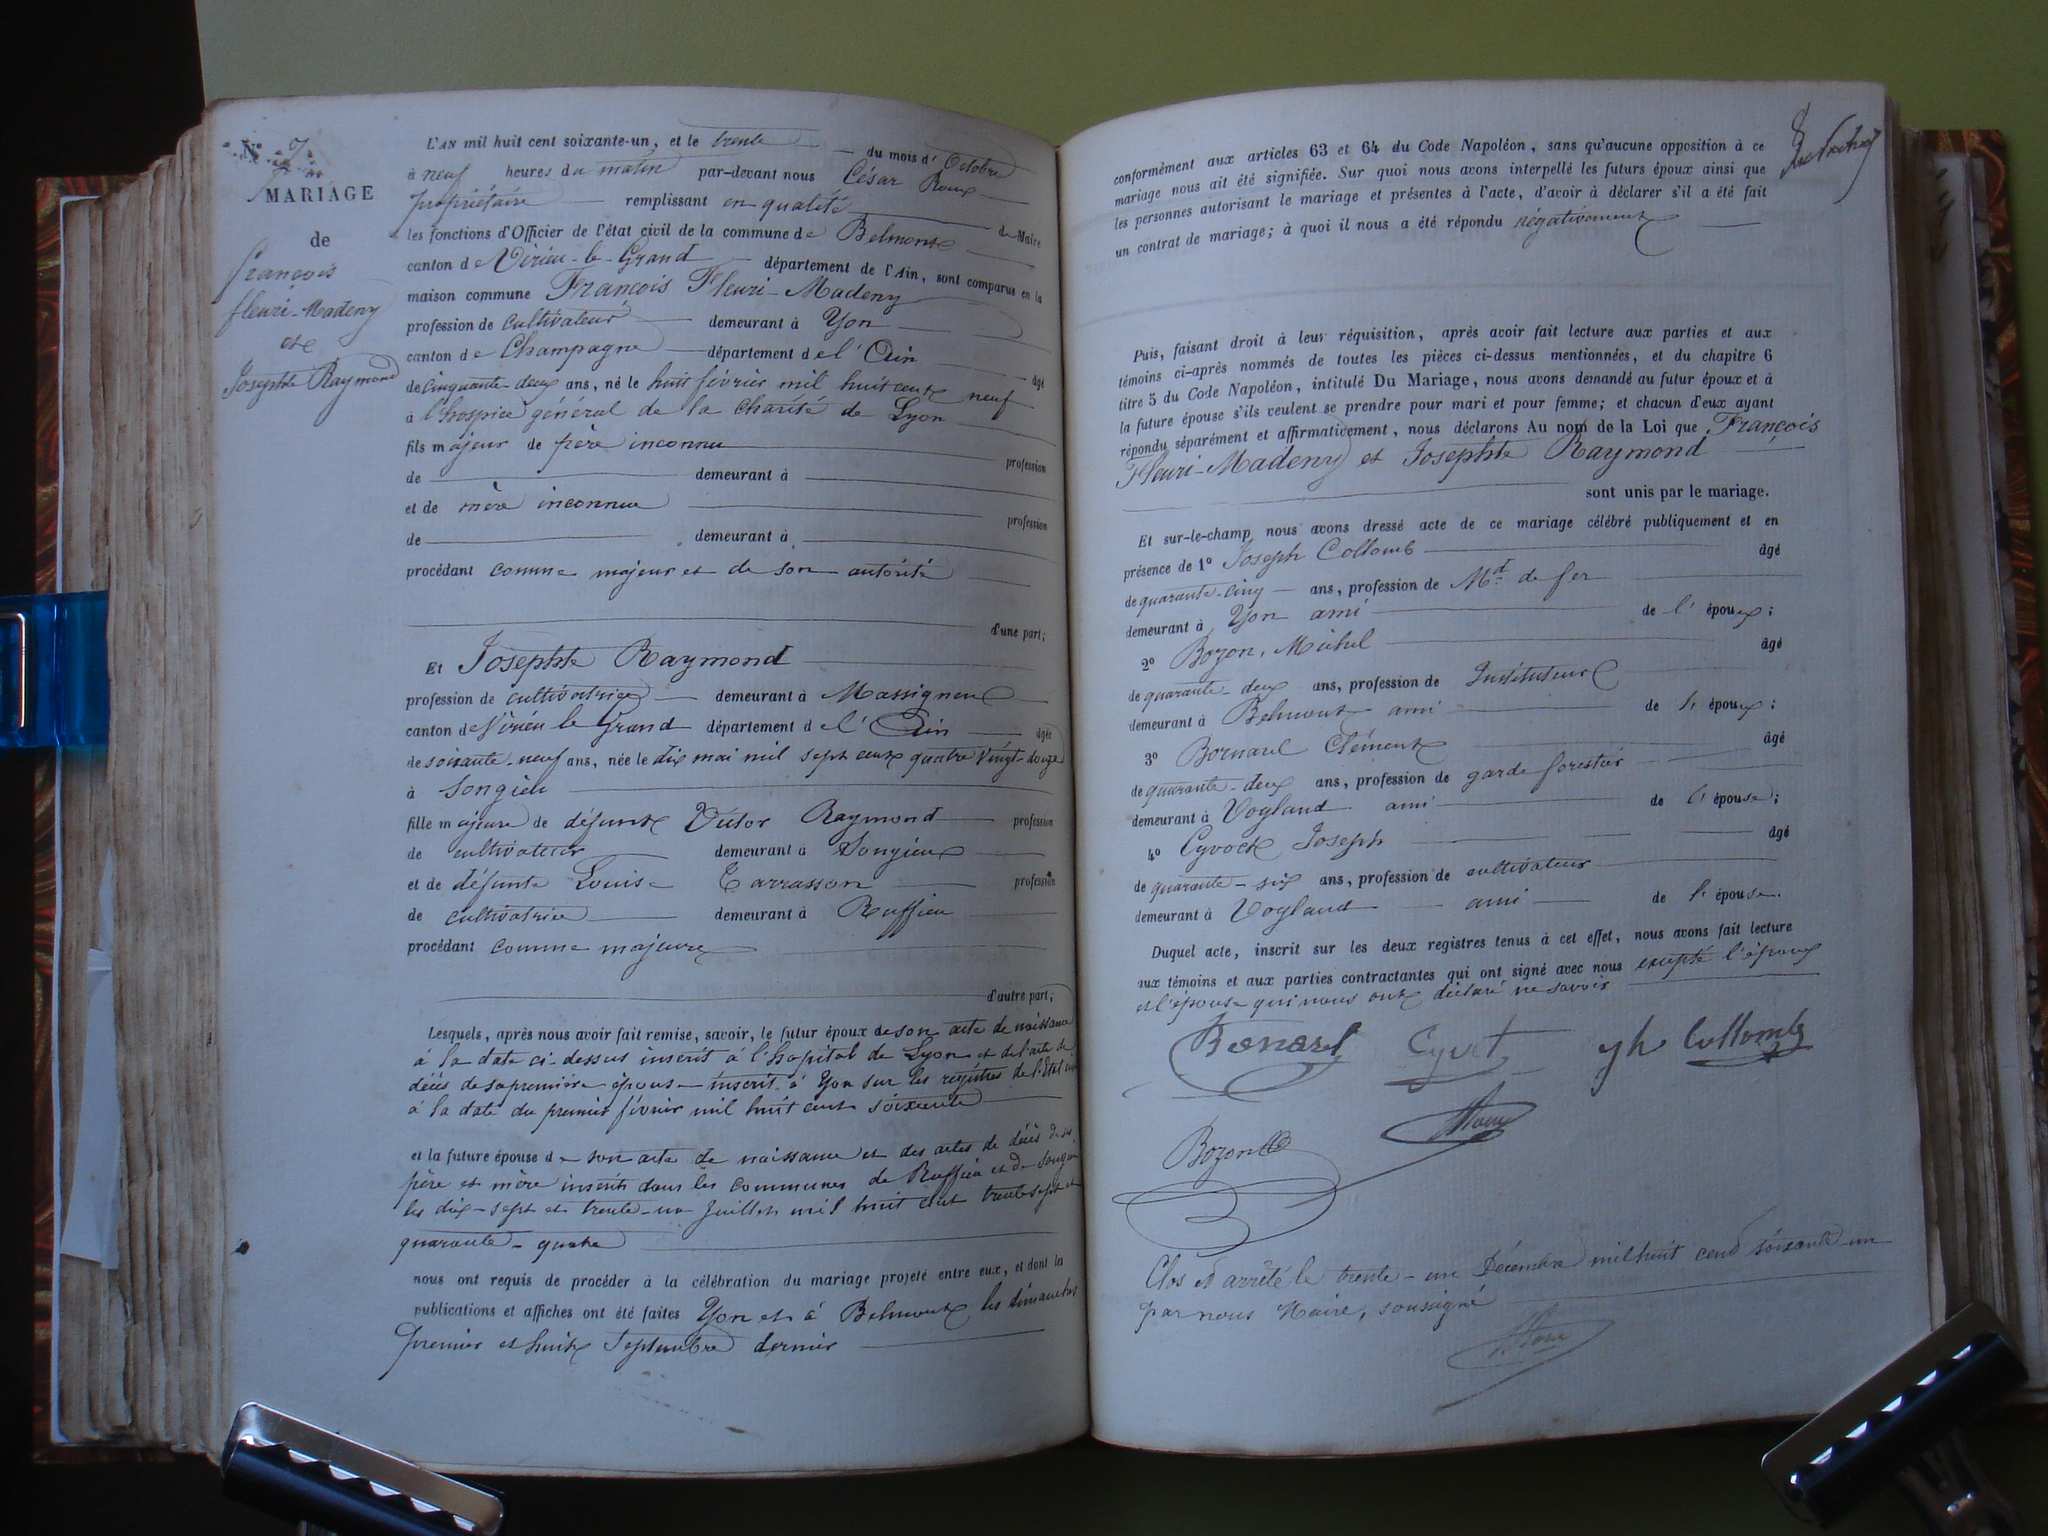 N° 7
MARIAGE
de
François
fleuri-Madeny
et
Josephte Raymond
L'AN mil huit cent soixante-un, et le trente du mois d'Octobre
à neuf heures du matin par-devant nous César Roux
propriétaire remplissant en qualité de Maire
les fonctions d'Officier de l'état civil de la commune de Belmont
canton de Virieu-le-Grand département de l'Ain, sont comparus en la
maison commune François Fleuri-Madeny
profession de cultivateur demeurant à Yon
canton de Champagne département de l'Ain âgé
de cinquante-deux ans, né le huit février mil huit cent neuf
à l'hospice général de la charité de Lyon
fils majeur de père inconnu profession
de demeurant à
et de mère inconnue profession
de demeurant à
procédant comme majeur et de son autorité
d'une part;
Et Josephte Raymond
profession de cultivatrice demeurant à Massigneu
canton de Virieu le Grand département de l'Ain âgée
de soixante-neuf ans, née le dix mai mil sept cent quatre vingt-douze
à Songieu
fille majeure de défunt Victor Raymond profession
de cultivateur demeurant à Songieu
et de défunte Louise Tarrasson profession
de cultivatrice demeurant à Ruffieu
procédant comme majeure
d'autre part;
Lesquels, après nous avoir fait remise, savoir, le futur époux de son acte de naissance
à la date ci-dessus inscrit à l'hopital de Lyon et de l'acte de
décès de sa première épouse inscrit à Yon sur les registres de l'Etat civil
à la date du premier février mil huit cent soixante
et la future épouse de son acte de naissance et des actes de décès de ses
père et mère inscrits dans les communes de Ruffieu et de Songieu
les dix-sept et trente-un Juillet mil huit cent trente sept et
quarante-quatre
nous ont requis de procéder à la célébration du mariage projeté entre eux, et dont la
publications et affiches ont été faites Yon et à Belmont les dimanches
premier et huit Septembre dernier
conformément aux articles 63 et 64 du Code Napoléon, sans qu'aucune opposition à ce
mariage nous ait été signifiée. Sur quoi nous avons interpellé les futurs époux ainsi que
les personnes autorisant le mariage et présentes à l'acte, d'avoir à déclarer s'il a été fait
un contrat de mariage; à quoi il nous a été répondu négativement
Puis, faisant droit à leur réquisition, après avoir fait lecture aux parties et aux
témoins ci-après nommés de toutes les pièces ci-dessus mentionnées, et du chapitre 6
titre 5 du Code Napoléon, intitulé Du Mariage, nous avons demandé au futur époux et à
la future épouse s'ils veulent se prendre pour mari et pour femme; et chacun d'eux ayant
répondu séparément et affirmativement, nous déclarons Au nom de la Loi que François
Fleuri-Madeny et Josephte Raymond
sont unis par le mariage.
Et sur-le-champ nous avons dressé acte de ce mariage célébré publiquement et en
présence de 1° Joseph Collomb âgé
de quarante-cinq ans, profession de Md de fer
demeurant à Yon ami de l'époux;
2° Bozon, Michel âgé
de quarante-deux ans, profession de Instituteur
demeurant à Belmont ami de l'époux;
3° Bornarel Clément âgé
de quarante-deux ans, profession de garde forestier
demeurant à Vogland ami de l'épouse;
4° Cyvoct Joseph âgé
de quarante-six ans, profession de cultivateur
demeurant à Vogland ami de l'épouse.
Duquel acte, inscrit sur les deux registres tenus à cet effet, nous avons fait lecture
aux témoins et aux parties contractantes qui ont signé avec nous excepté l'époux
et l'épouse qui nous ont déclaré ne savoir
Bonarel Cyvct jh Collomb
Roux
Bozon
Clos et arrêté le trente-un Décembre mil huit cent soixante un
par nous Maire, soussigné
Roux